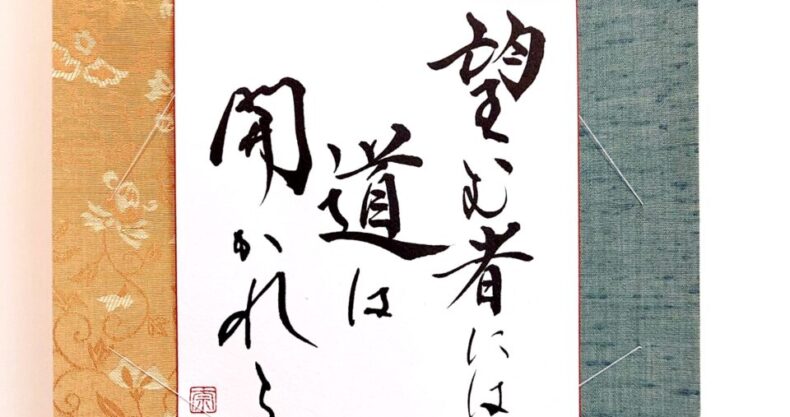 望む者には
道は
開かれ